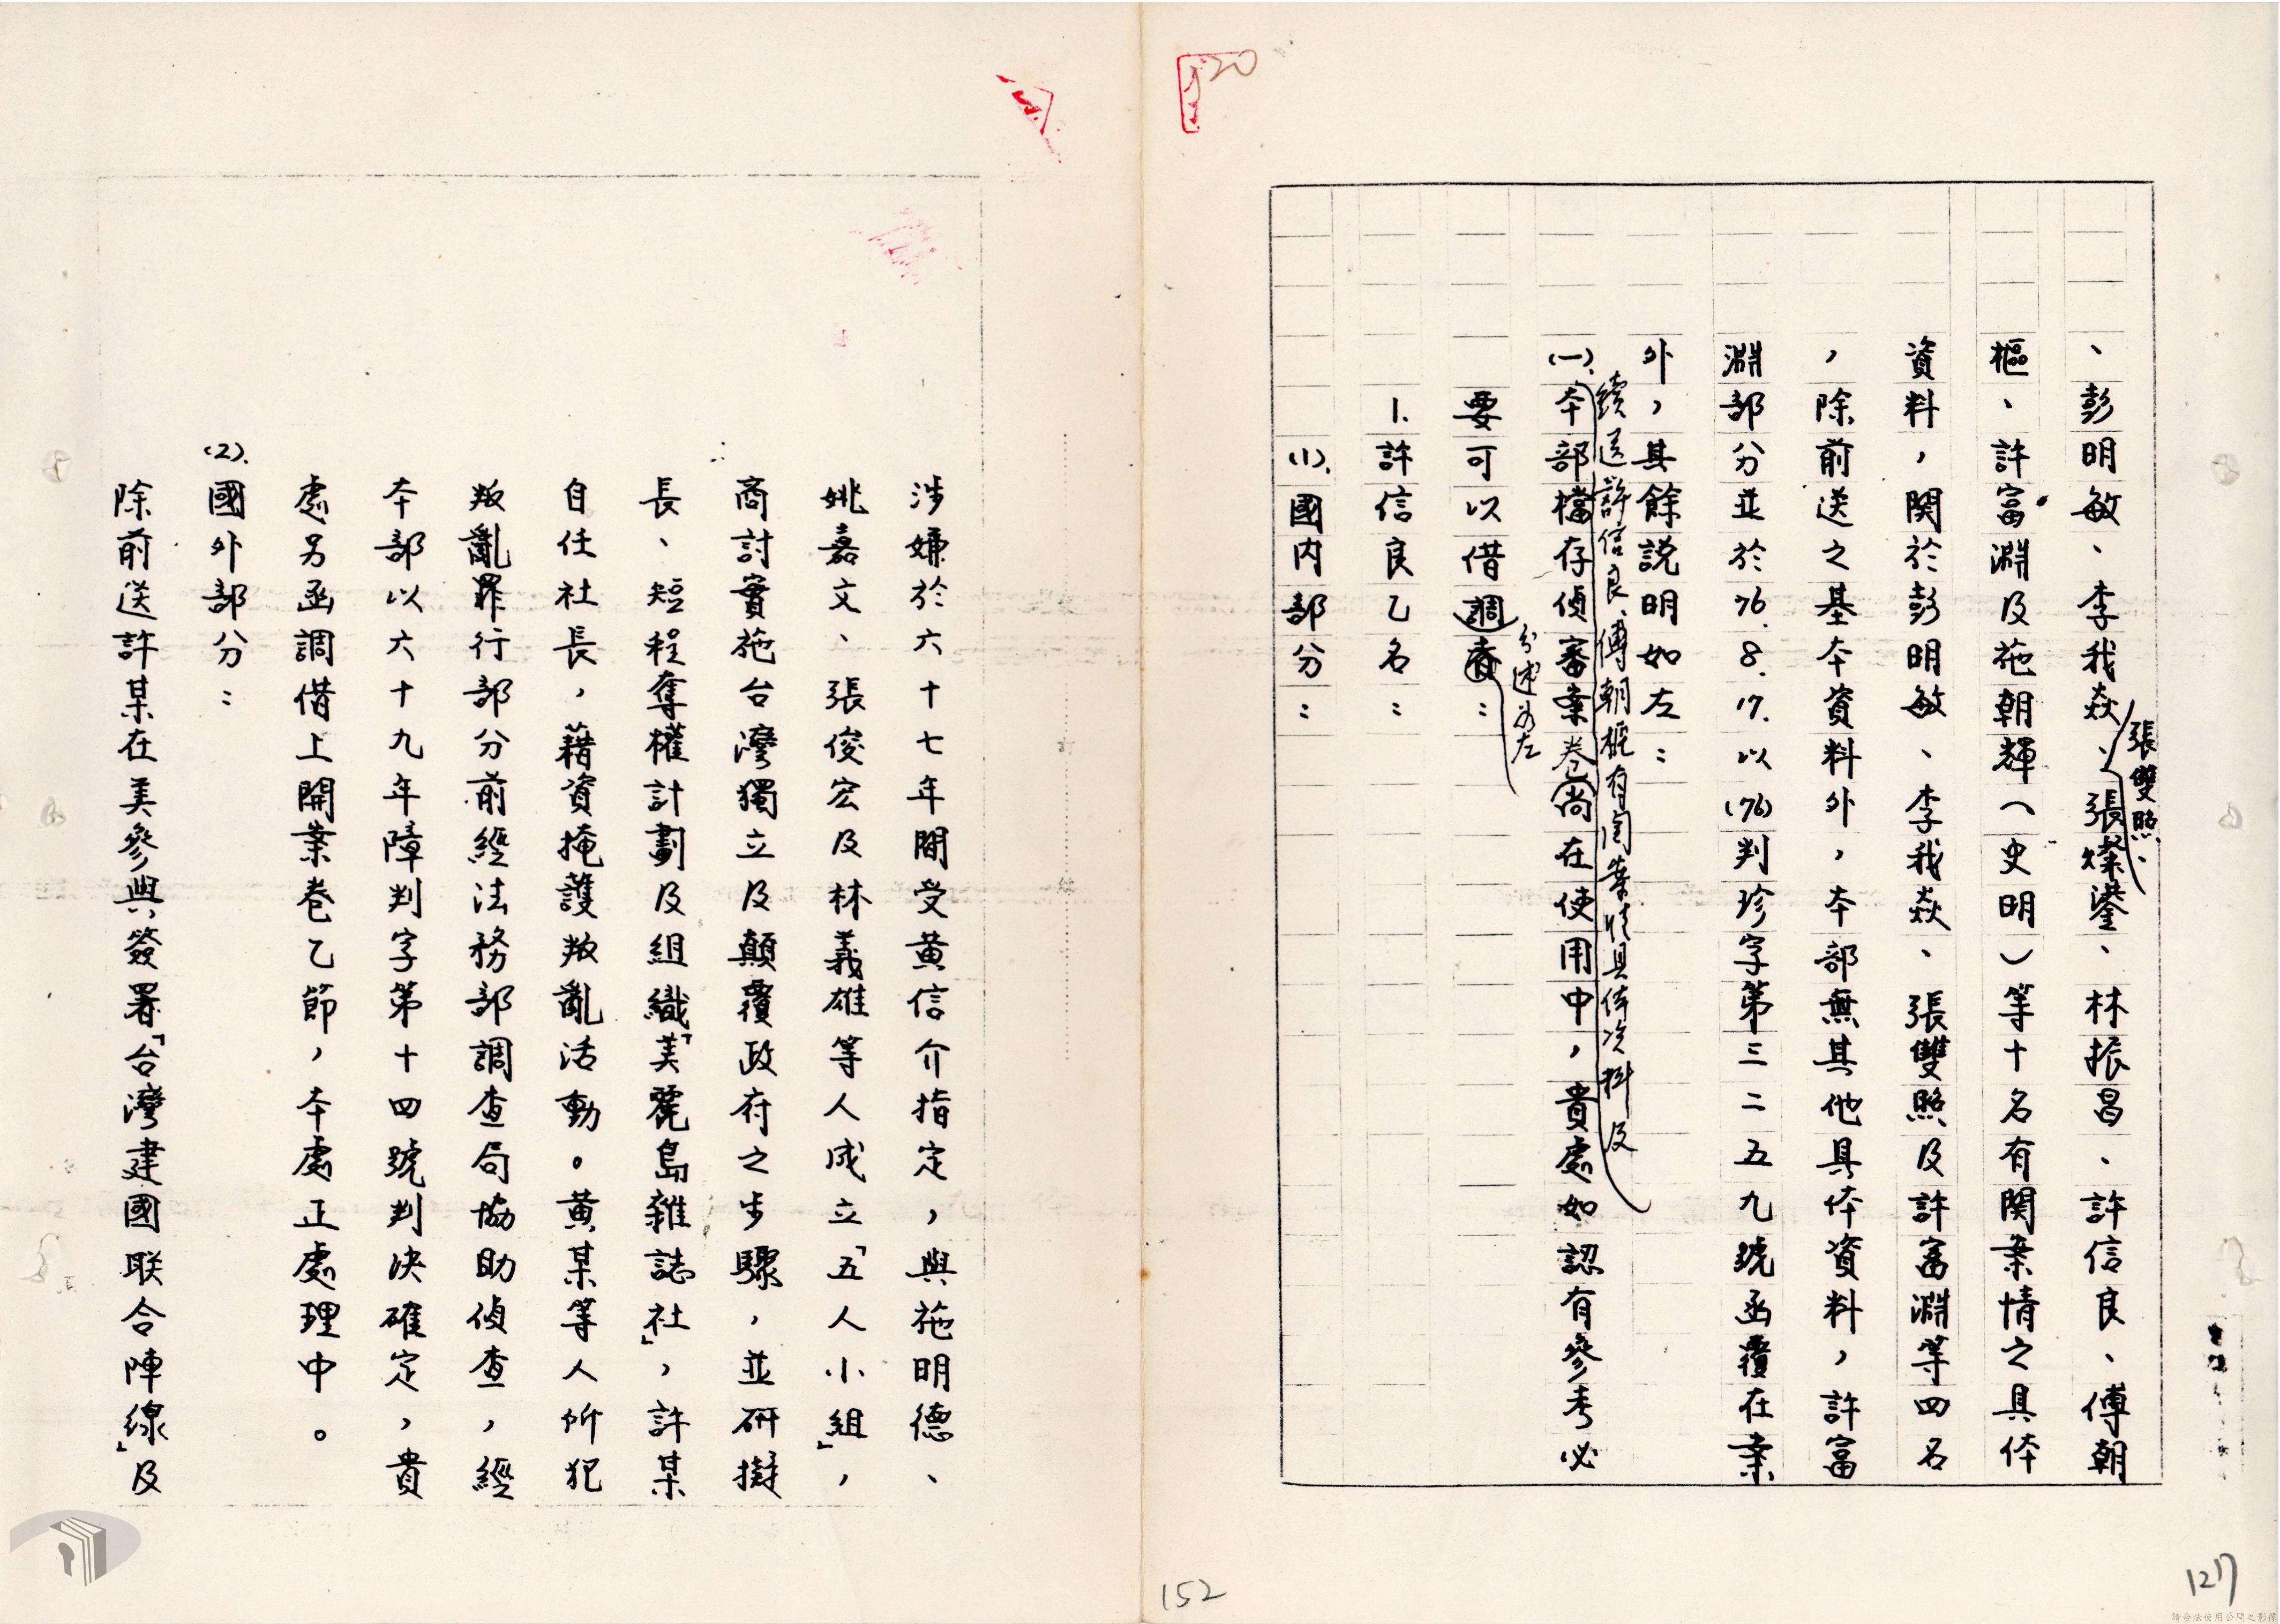 、彭明敏、李我焱、張燦鍙、林振昌、許信良、傅朝
張雙照、
樞、許富淵及施朝輝(史明)等十名有関案情之具体
資料，関於彭明敏、李我焱、張雙照及許富淵等四名
，除前送之基本資料外，本部無其他具体資料，許富
淵部分並於76.8.17.以(76)判珍字第三二五九號函覆在案
外，其餘説明如左：
續送許信良、傅朝樞有関案情具体資料及
(一)本部檔存偵審案卷尚在使用中，貴處如認有參考必
分述如左
要可以借調查：
1.許信良乙名：
(1).國内部分：
涉嫌於六十七年間受黄信介指定，與施明德、
姚嘉文、張俊宏及林義雄等人成立「五人小組」，
商討實施台灣獨立及顛覆政府之步驟，並研擬
長、短程奪權計劃及組織「美麗島雜誌社」，許某
自任社長，藉資掩護叛亂活動。黄某等人所犯
叛亂罪行部分前經法務部調查局協助偵查，經
本部以六十九年障判字第十四號判決確定，貴
處另函調借上開案卷乙節，本處正處理中。
(2).國外部分：
除前送許某在美參與簽署「台灣建國联合陣線」及
120
152
127
請合法使用公開之影像